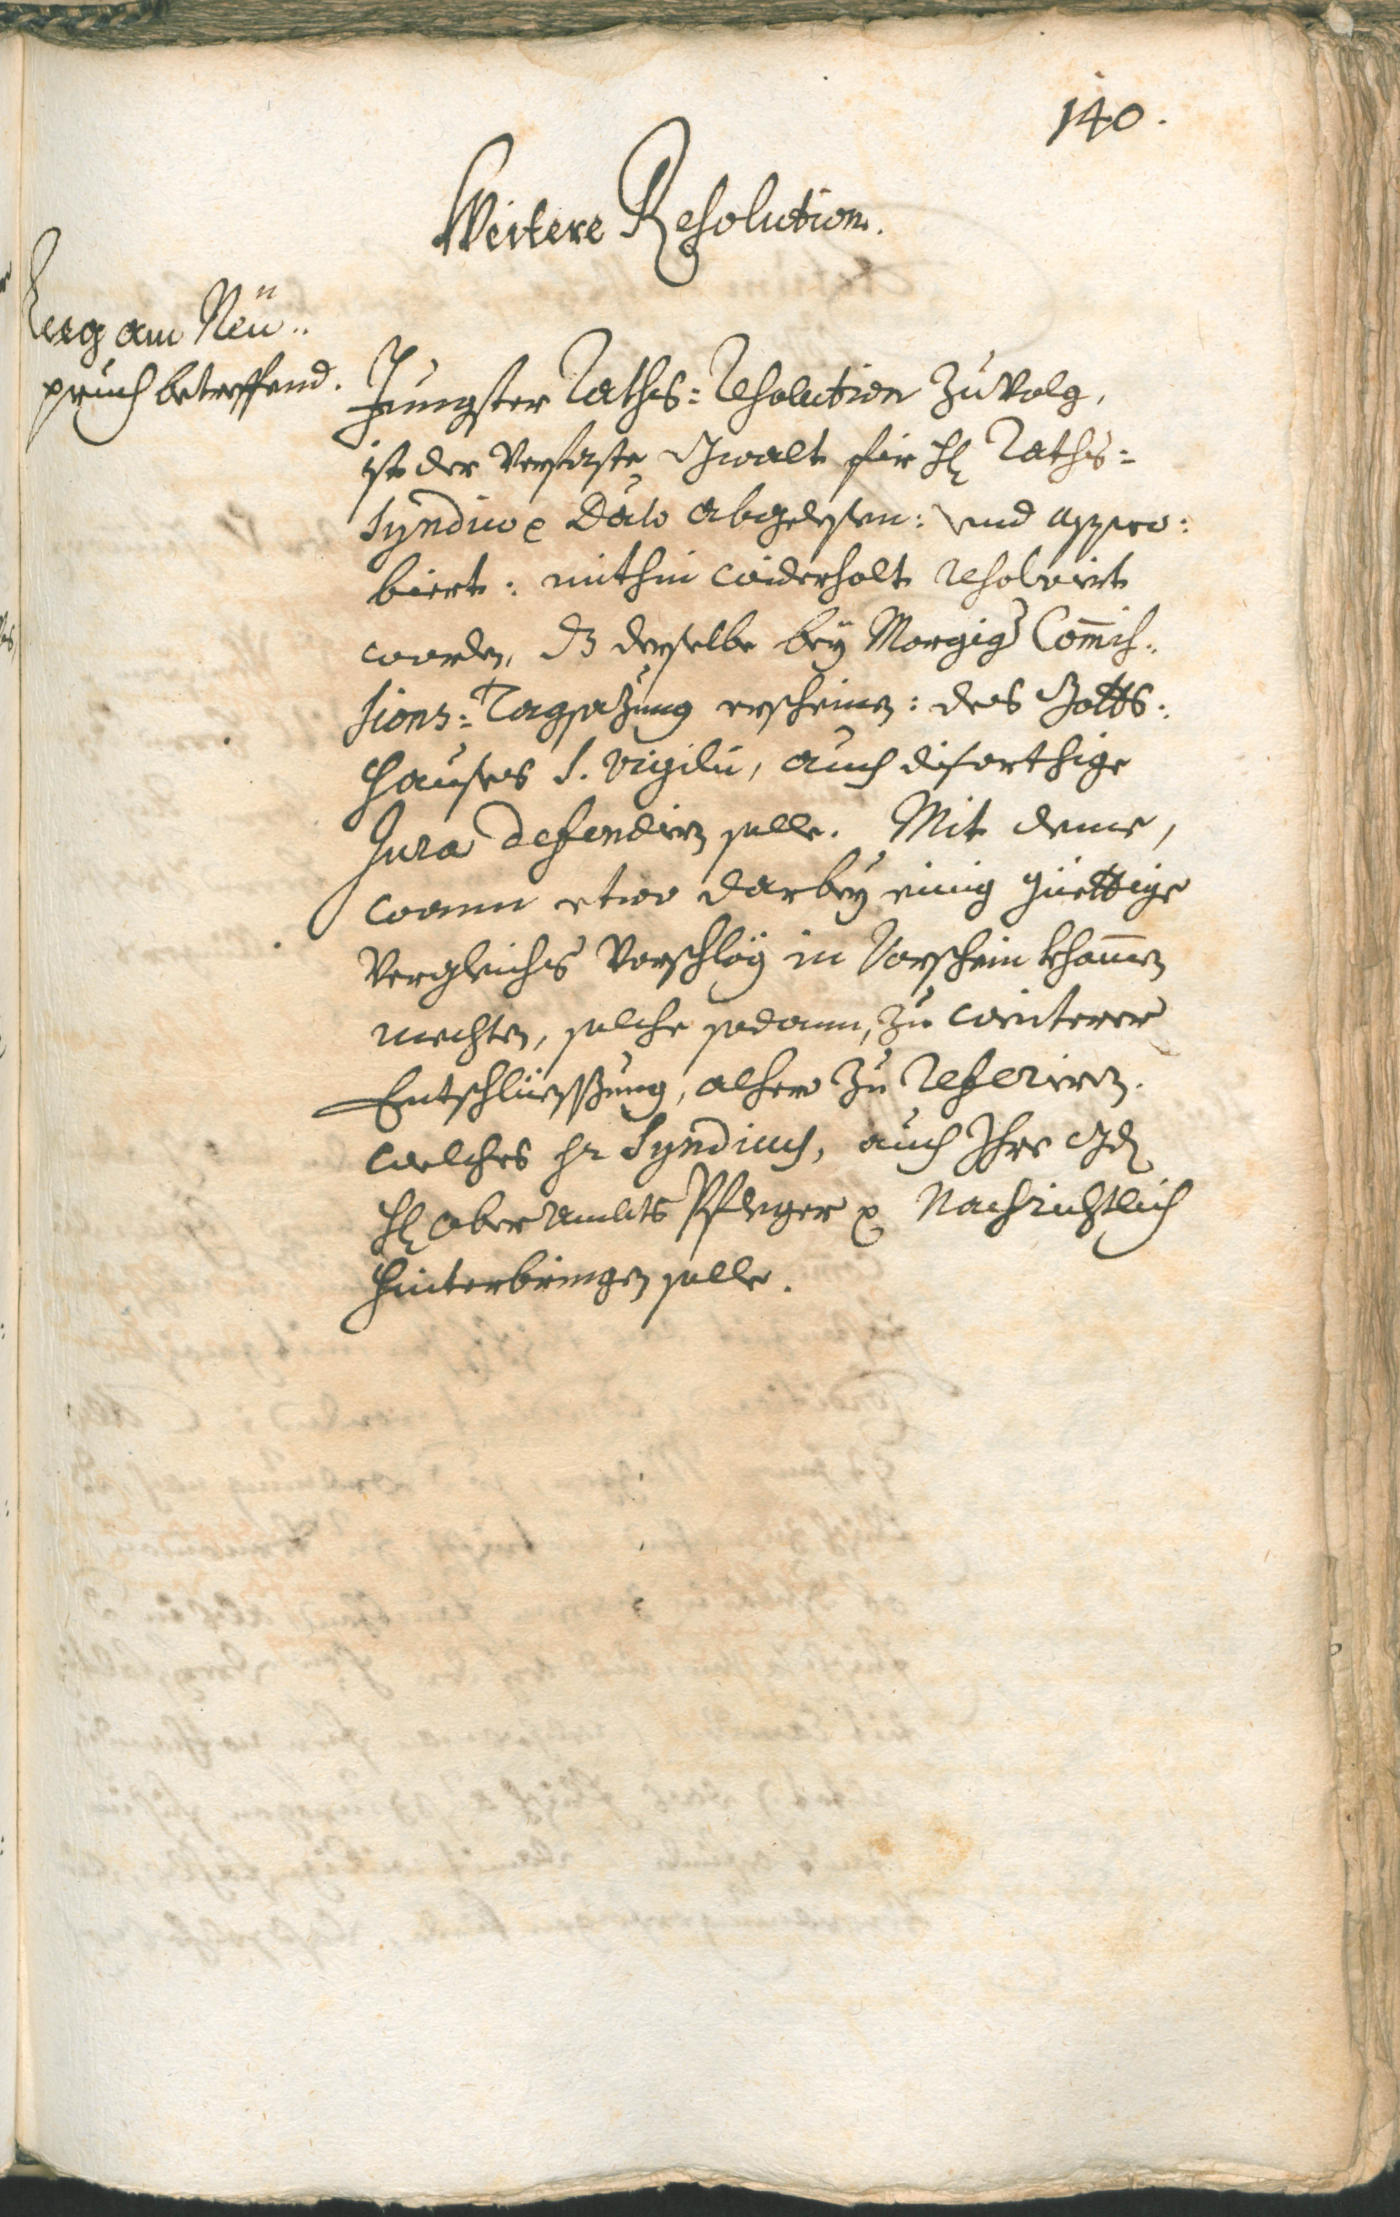 140.
Weitere Resolution.
Weeg am Neu..
pruch betreffend.
Jungster Raths= Resolution zu volg,
ist der verfaste Gwalt für H: Raths=
Syndico e Dato abgelesen: und appro:
biert: mithin widerholt resolvirt
worden, dz derselbe bey Morgig Com̄is..
sions= Tagsazung erscheinen: des Gotts..
hauses S. Vigilii, auch diserthige
Jura defendiren solle. Mit deme,
wann etwo darbey einig güettige
Vergleichs Vorschlög in Vorschein khom̄en
mechten, solche sodann, zu weiterer
Entschlüessung, alhero zu referiren.
welches Hr Syndicus, auch Ihro Gd
H: Ober Ambts Pfleger p Nachrichtlich
hinterbringen solle.